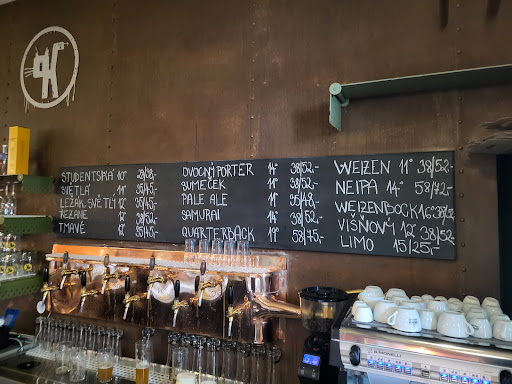 STUDENTSKÁ 10° 28/38,-
SVĚTLÁ 11° 35/45,-
LEŽÁK SVĚTLÝ 12° 35/45,-
ŘEZANÉ 35/45,-
TMAVÉ 12° 35/45,-
OVOCNÝ PORTER 14° 38/52,-
SUMEČEK 11° 38/52,-
PALE ALE 11° 35/48,-
SAMURAI 38/52,-
QUARTERBACK 11° 58/75,-
WEIZEN 11° 38/52,-
NEIPA 14° 58/72,-
WEIZENBOCK 16° 38/52,-
VIŠŇOVÝ 12° 38/52,-
LIMO 15/25,-